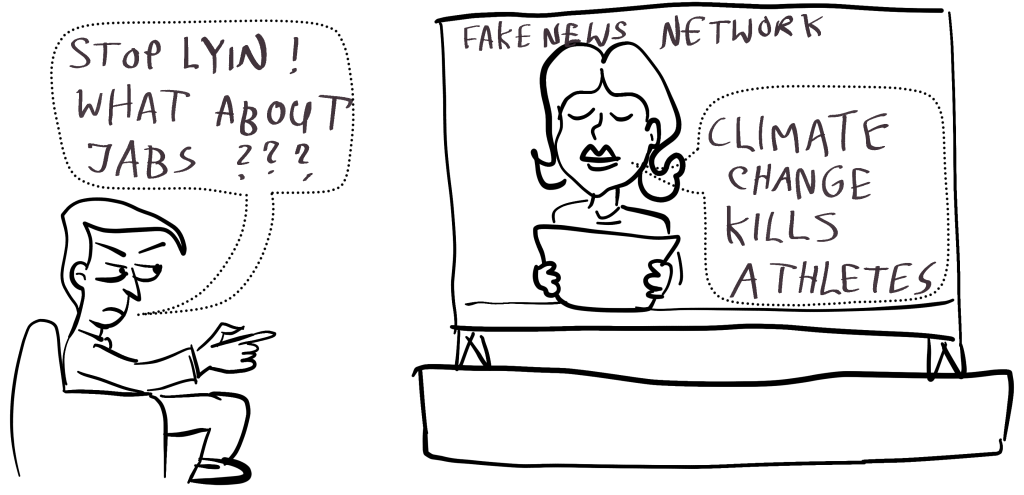 STOP LYIN !
WHAT ABOUT
JABS ???
FAKE NEWS NETWORK
CLIMATE
CHANGE
KILLS
ATHLETES